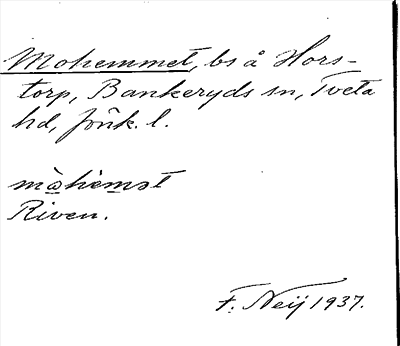 Mohemmet, bs å Hors-
torp, Bankeryds sn, Tveta
hd, Jönk. l.
Riven.
F. Neij 1937.